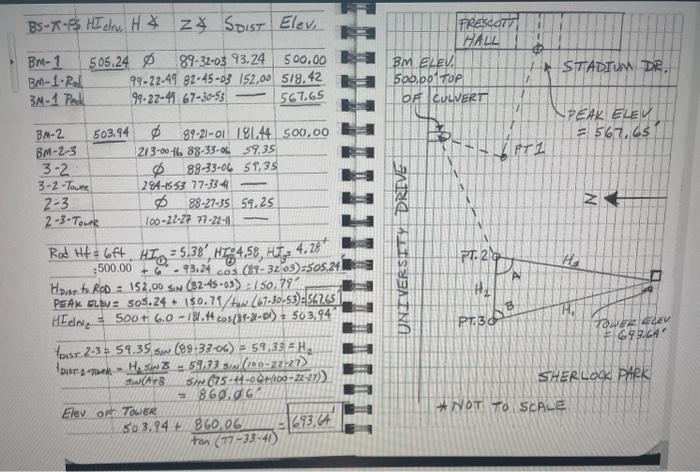 BS-⊼-FS HI elev. H∡ Z∡ SDIST Elev.
BM-1 505.24 Ø 89-32-03 93.24 500.00
BM-1-Rod 99-22-49 82-45-03 152.00 518.42
BM-1 Peak 99-22-49 67-30-53 — 567.65
BM-2 503.94 Ø 89-21-01 181.44 500.00
BM-2-3 213-00-16 88-33-06 59.35
3-2 Ø 88-33-06 59.35
3-2-Tower 284-15-53 77-33-41 —
2-3 Ø 88-27-35 59.25
2-3-Tower 100-22-27 77-22-11 —
Rod Ht = 6ft. HI① = 5.38' HI② = 4.58, HI③ = 4.28'
:500.00 + 6' - 93.24 cos (89-32-03) = 505.24
HDIST to ROD = 152.00 SIN (82-45-03) = 150.79'
PEAK ELEV = 505.24 + 150.79 / tan (67-30-53) = 567.65
HIelv2 = 500 + 6.0 - 181.44 cos(89-21-01) = 503.94
HDIST. 2-3 = 59.35 SIN (88-33-06) = 59.33 = H2
HDIST 2-TOWER = H2 SIN B / SIN(A+B) = 59.33 SIN (100-22-27) / SIN (75-44-06+(100-22-27))
= 860.06'
Elev of TOWER
503.94 + 860.06 / tan (77-33-41) = 693.64'
PRESCOTT
HALL
STADIUM DR.
BM ELEV.
500.00' TOP
OF CULVERT
PEAK ELEV
= 567.65'
PT 1
N
UNIVERSITY DRIVE
PT. 2
A
H3
H2
B
H1
PT. 3
TOWER ELEV
= 693.64'
SHERLOCK PARK
* NOT TO SCALE